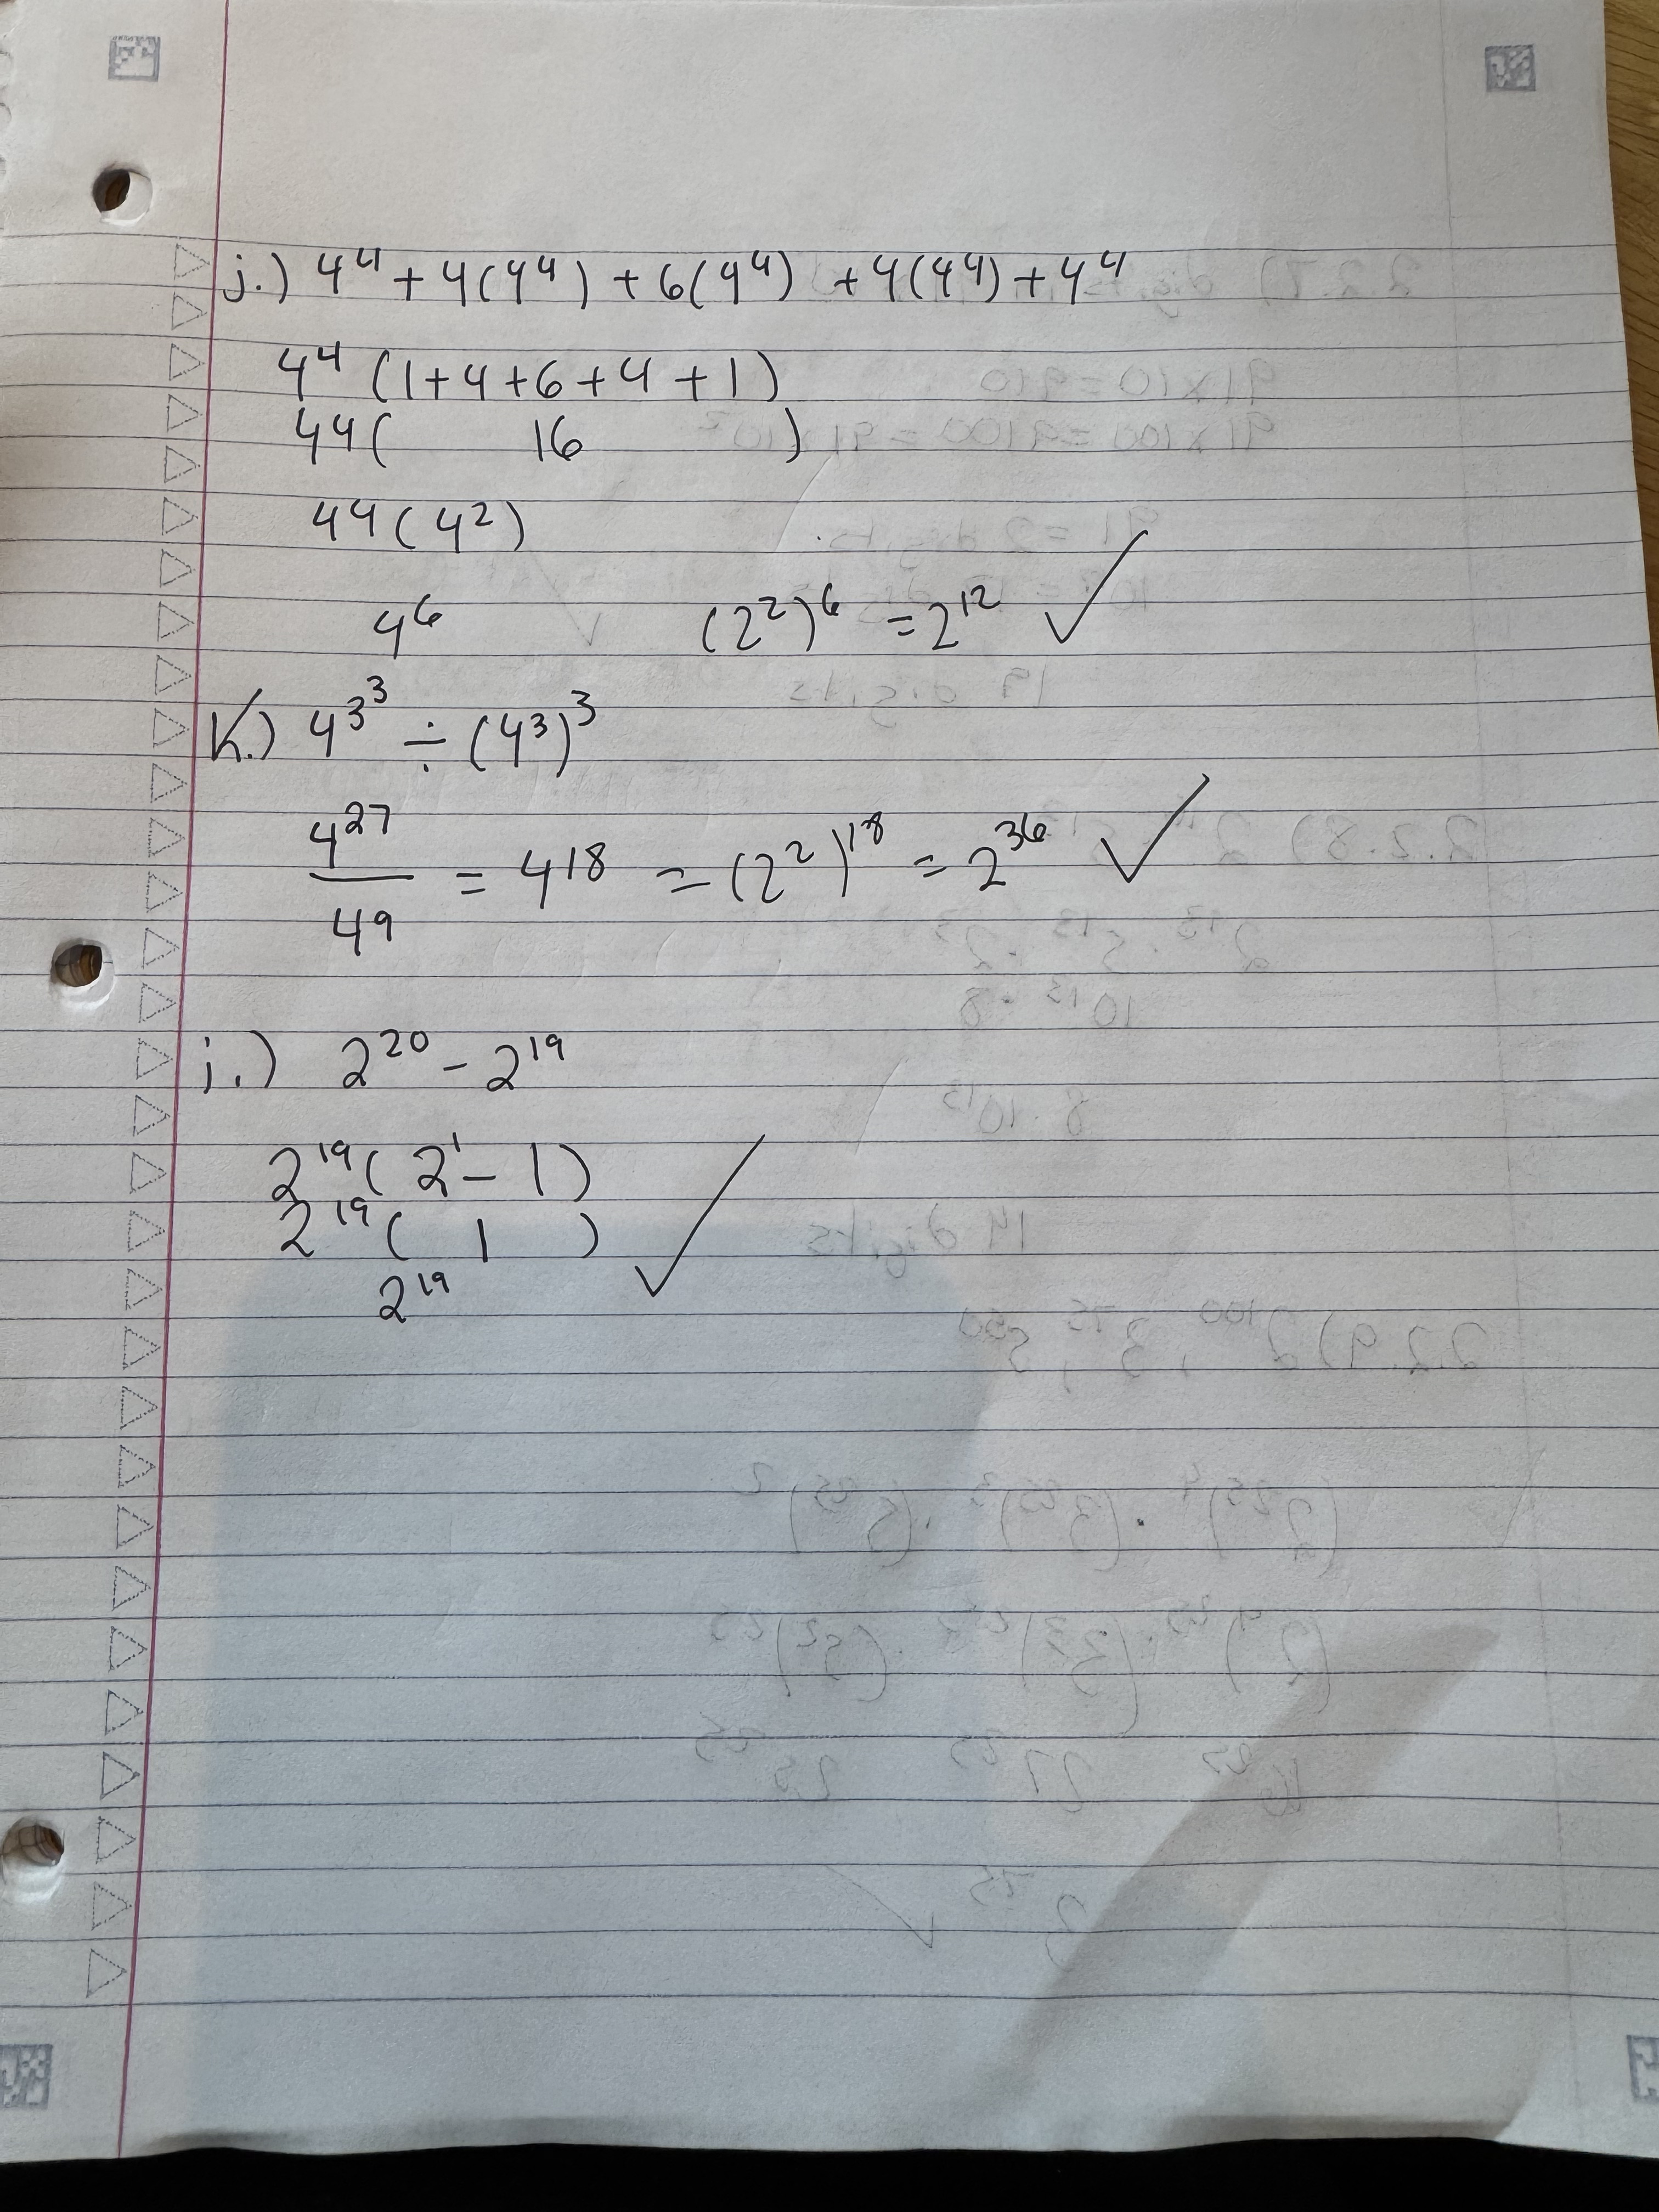 j.) 4⁴ + 4(4⁴) + 6(4⁴) + 4(4⁴) + 4⁴
4⁴ (1+4+6+4+1)
4⁴( 16 )
4⁴(4²)
4⁶ (2²)⁶ = 2¹² ✓
K.) 4^3^3 ÷ (4³)³
4²⁷/4⁹ = 4¹⁸ = (2²)¹⁸ = 2³⁶ ✓
i.) 2²⁰ - 2¹⁹
2¹⁹( 2¹ - 1)
2¹⁹( 1 ) ✓
2¹⁹